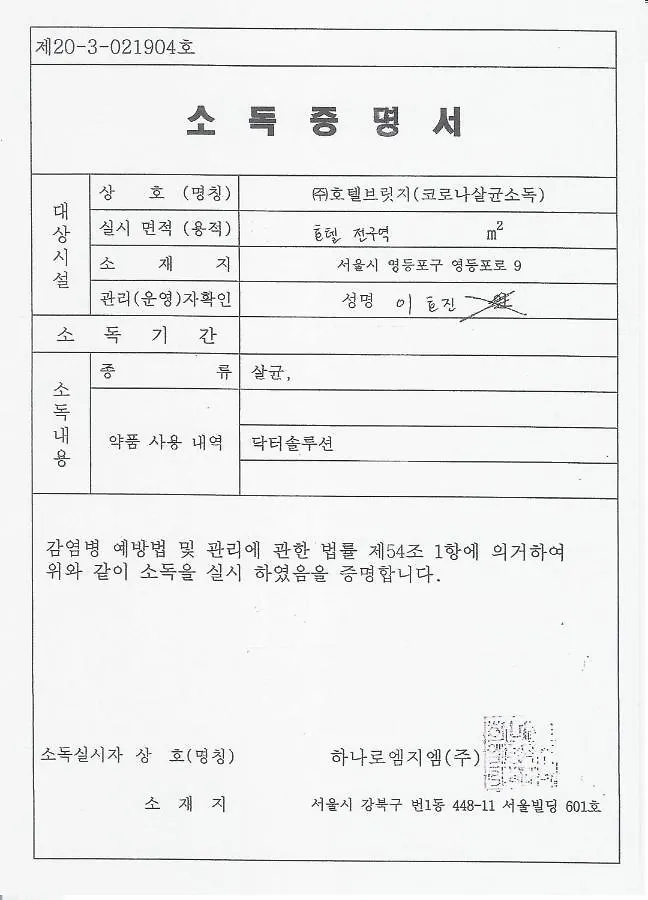 제20-3-021904호
소 독 증 명 서
대상시설
상 호 (명칭)
㈜호텔브릿지(코로나살균소독)
실시 면적 (용적)
호텔 전구역 m²
소 재 지
서울시 영등포구 영등포로 9
관리(운영)자확인
성명 이효진
소 독 기 간
소독내용
종 류
살균,
약품 사용 내역
닥터솔루션
감염병 예방법 및 관리에 관한 법률 제54조 1항에 의거하여
위와 같이 소독을 실시 하였음을 증명합니다.
소독실시자 상 호(명칭) 하나로엠지엠(주)
소 재 지 서울시 강북구 번1동 448-11 서울빌딩 601호